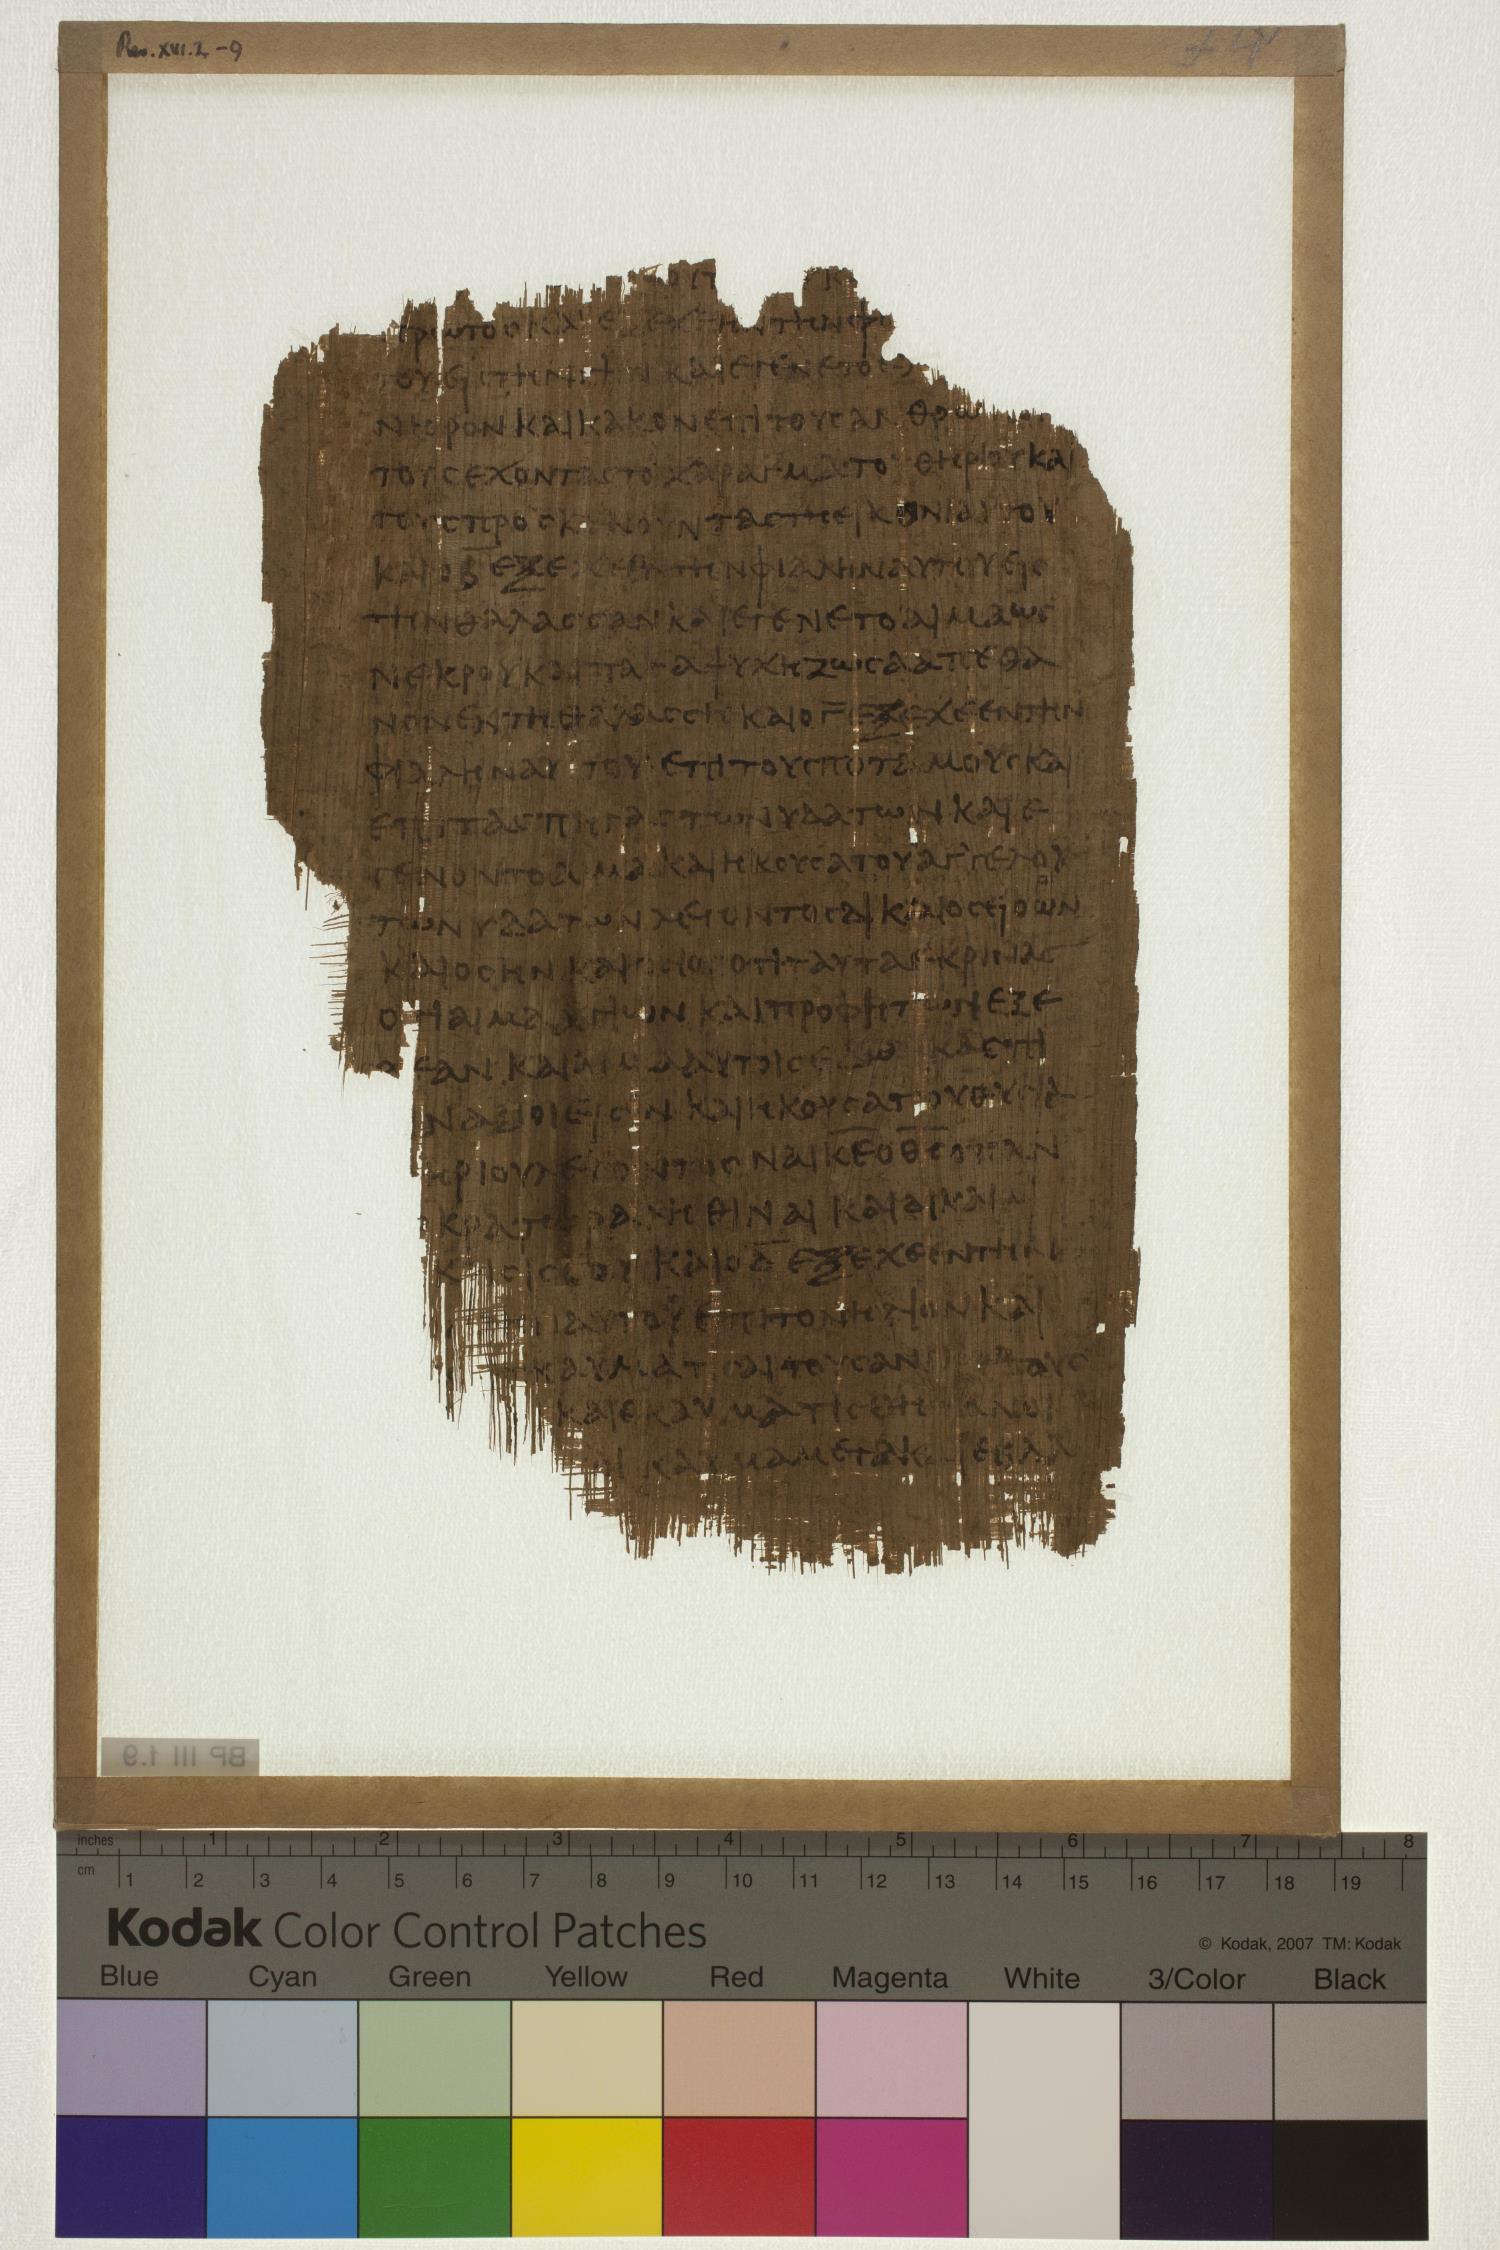 Rev. XVI. 2-9
ΤΗΝΦΙ
ΤΟΥΕΙϹΤΗΝΓΗΝΚΑΙΕΓΕΝΕΤΟΕΛ
ΝΗΡΟΝΚΑΙΚΑΚΟΝΕΠΙΤΟΥϹΑΝΘΡΩ
ΤΟΥϹΕΧΟΝΤΑϹΤΟΧΑΡΑΓΜΑΤΟΥΘΗΡΙΟΥΚΑΙ
ΤΟΥϹΠΡΟϹΚΥΝΟΥΝΤΑϹΤΗΕΙΚΟΝΙΑΥΤΟΥ
ΚΑΙΟΒ̅ΕΞΕΧΕΕΝΤΗΝΦΙΑΛΗΝΑΥΤΟΥΕΙϹ
ΤΗΝΘΑΛΑϹϹΑΝΚΑΙΕΓΕΝΕΤΟΑΙΜΑΩϹ
ΝΕΚΡΟΥΚΑΙΠΑϹΑΨΥΧΗΖΩΗϹΑΠΕΘΑ
ΝΕΝΕΝΤΗΘΑΛΑϹϹΗΚΑΙΟΓ̅ΕΞΕΧΕΕΝΤΗΝ
ΦΙΑΛΗΝΑΥΤΟΥΕΠΙΤΟΥϹΠΟΤΑΜΟΥϹΚΑΙ
ΕΠΙΤΑϹΠΗΓΑϹΤΩΝΥΔΑΤΩΝΚΑΙΕ
ΓΕΝΟΝΤΟΑΙΜΑΚΑΙΗΚΟΥϹΑΤΟΥΑΓΓΕΛΟΥ
ΤΩΝΥΔΑΤΩΝΛΕΓΟΝΤΟϹΔΙΚΑΙΟϹΕΙΟΩΝ
ΚΑΙΟϹΗΝΚΑΙΟϹΙΟϹΟΤΙΤΑΥΤΑΕΚΡΙΝΑϹ
ΟΤΙΑΙΜΑΑΓΙΩΝΚΑΙΠΡΟΦΗΤΩΝΕΞΕ
ΧΕΑΝΚΑΙΑΙΜΑΑΥΤΟΙϹΕΔΩΚΑϹΠΙ
ΝΑΞΙΟΙΕΙϹΙΝΚΑΙΗΚΟΥϹΑΤΟΥΘΥϹΙΑ
ΗΡΙΟΥΛΕΓΟΝΤΟϹΝΑΙΚ̅Ε̅Ο̅Θ̅Ϲ̅ΟΠΑΝ
ΚΡΑΤΩΡΑΛΗΘΙΝΑΙΚΑΙΔΙΚΑΙΑΙ
ΚΡΙϹΙϹϹΟΥΚΑΙΟΔ̅ΕΞΕΧΕΕΝΤΗΝ
ΑΥΤΟΥΕΠΙΤΟΝΗΛΙΟΝΚΑΙ
ΚΑΥΜΑΤΙϹΑΙΤΟΥϹΑΝ
ΚΑΙΕΚΑΥΜΑΤΙϹΘΗ
ΚΑΥΜΑΜΕΓΑΚΑΙΕΒΛΑ
BP III f.9
inches 1 2 3 4 5 6 7 8
cm 1 2 3 4 5 6 7 8 9 10 11 12 13 14 15 16 17 18 19
Kodak Color Control Patches
© Kodak, 2007 TM: Kodak
Blue Cyan Green Yellow Red Magenta White 3/Color Black